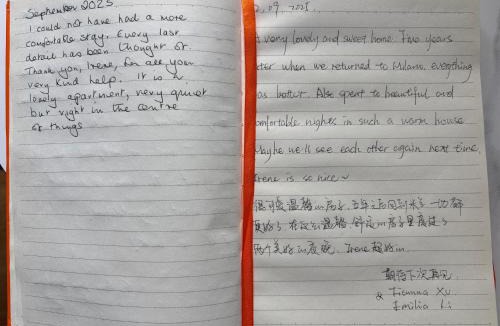 September 2025
I could not have had a more
comfortable stay. Every last
detail has been thought of.
Thank you, Irene, for all your
very kind help. It is a
lovely apartment, very quiet
but right in the centre
of things
2, 09, 2025.
A very lovely and sweet home. Five years
ter when we returned to Milano, everything
as better. Also spent to beautiful and
omfortable nights in such a warm house
Maybe we'll see each other again next time.
Irene is so nice~
很可爱温馨的房子，五年之后回到米兰一切都
更好了，在这么温馨舒适的房子里度过了
两个美好的夜晚，Irene 超好的。
期待下次再见
& Fianna Xu
Emilia Li